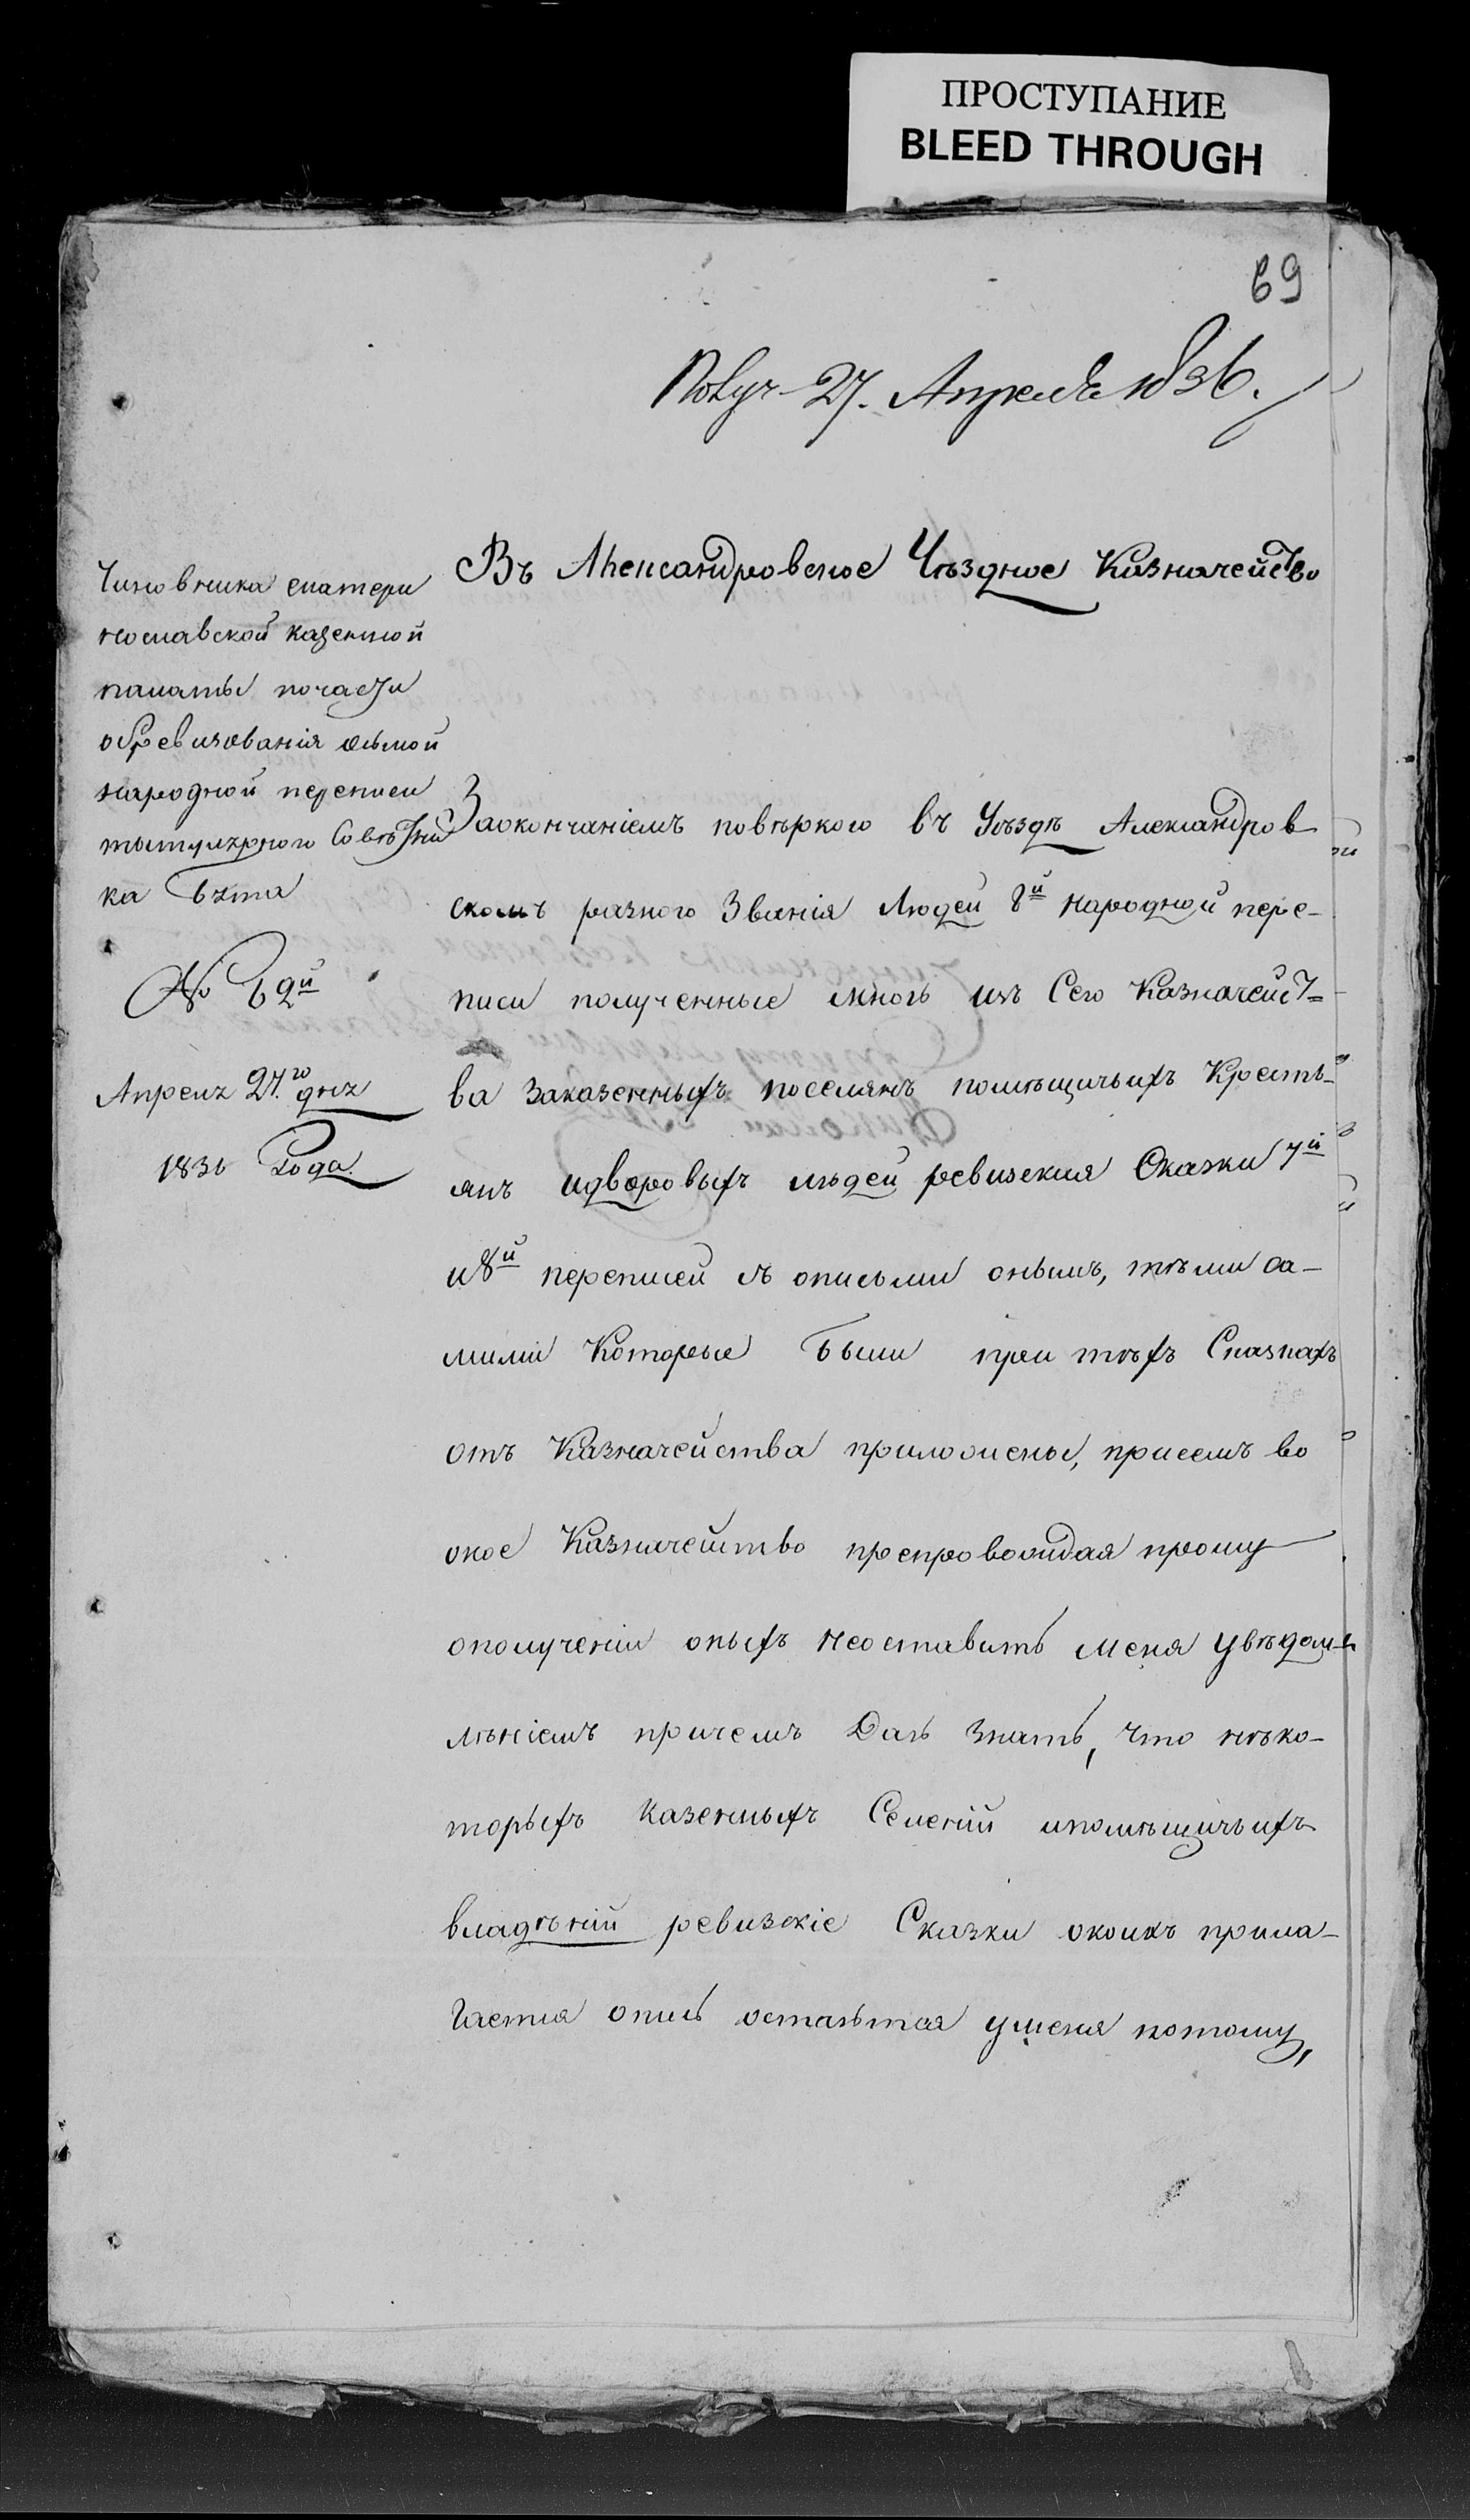 ПРОСТУПАНИЕ
BLEED THROUGH
69
Получ. 27. Апреля 1836.
Чиновника екатери
нославской казенной
палаты почасти
обревизованія осьмой
народной переписи
титулярного Совѣтни
ка
№ 62й
Апреля 27го дня
1836 Года.
Въ Александровское Уѣздное Казначейство
Заокончаніемъ повѣркою въ Уѣздѣ Александров
скомъ разного Званія Людей 8й народной пере-
писи полученные мною изъ Сего Казначейст=
ва заказенныхъ поселянъ помѣщичьихъ Кресть-
янъ идворовыхъ людей ревизския Сказки 7й
и 8й переписей съ описьми онымъ, тѣми са-
мими Которые были при тѣхъ Сказкахъ
отъ Казначейства приложены, присемъ во
оное Казначейство препровождая прошу
ополученіи оныхъ неоставить меня увѣдом-
лѣніемъ причемъ Даю знать, что нѣко-
торыхъ казенныхъ Селеній ипомѣщичьихъ
владѣній ревизскіе Сказки окоихъ прила-
гается опись остаются уменя потому,